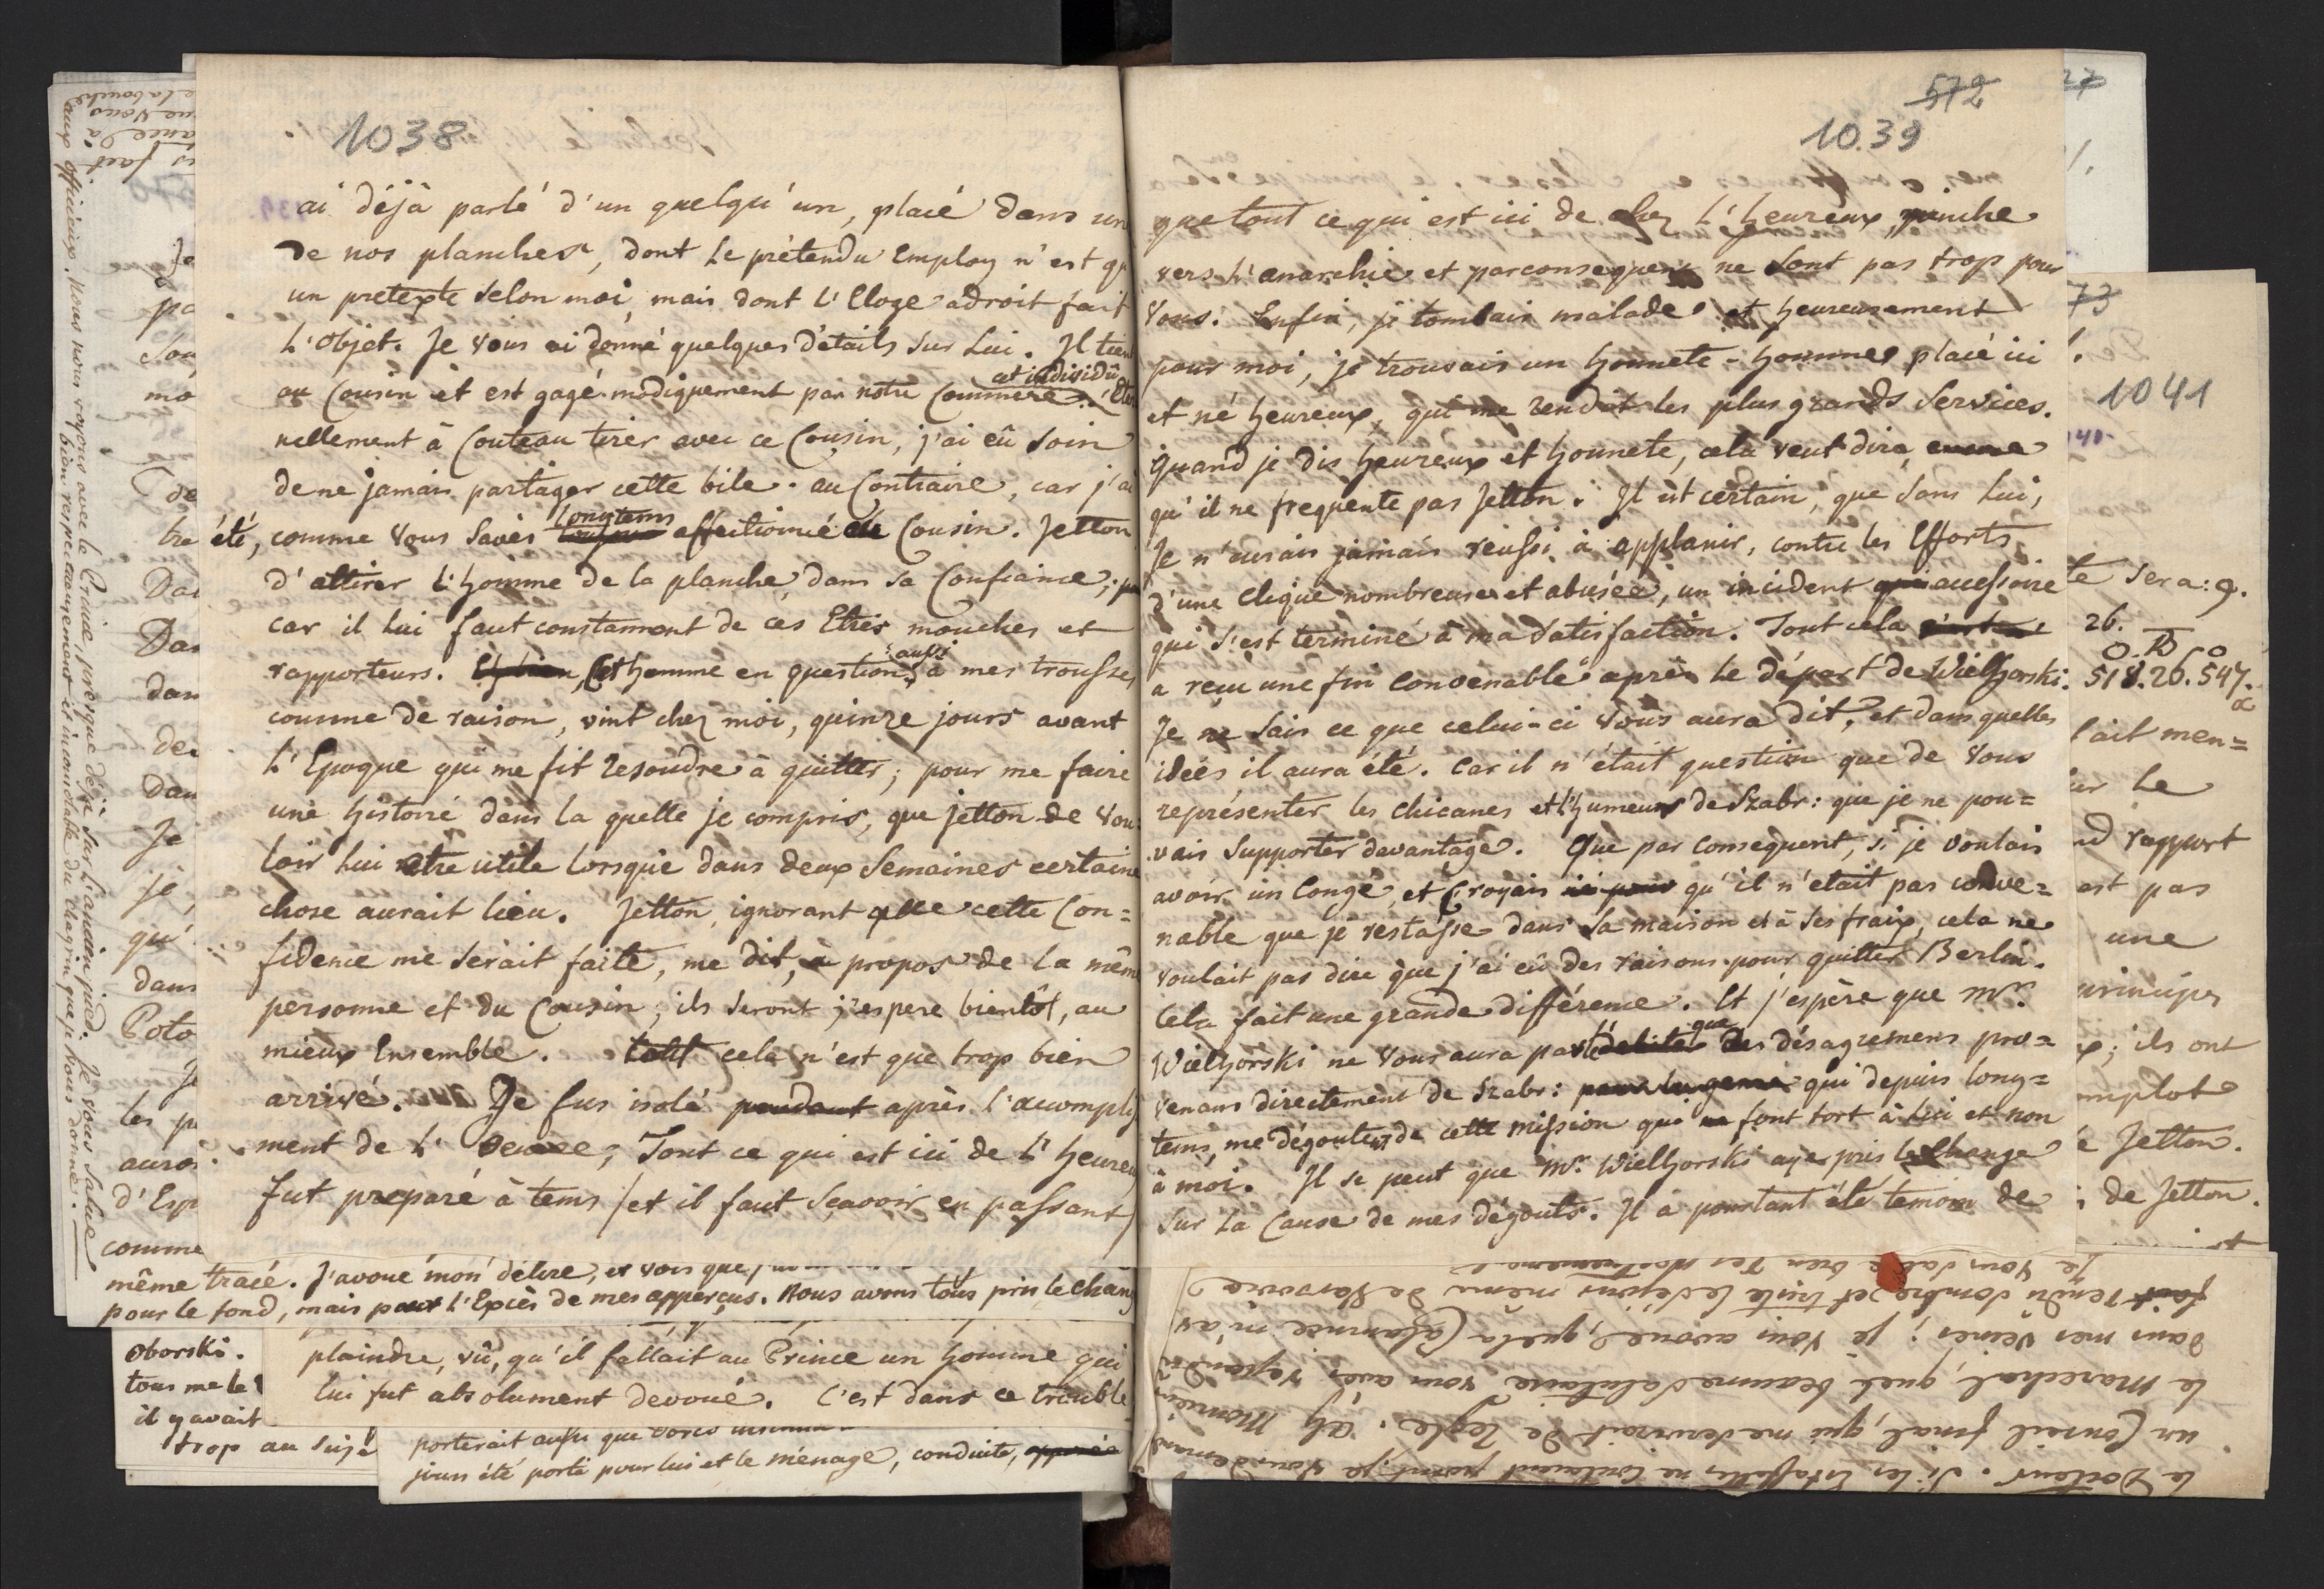 1038
ai déjà parlé d'un quelqu'un, placé dans un
de nos planches, dont le prétendu Employ n'est qu
un pretexte selon moi, mais dont l'Eloge adroit fait
l'Objet. Je vous ai donné quelques détails sur Lui. Il tient
au Cousin et est gagé modiquement par notre Commere. cet individû Eter
nellement à Couteau tirer avec ce Cousin, j'ai eû soin
de ne jamais partager cette bile. au Contraire, car j'ai
été, comme vous savès longtems affectionné de Cousin. Jetton
d'attirer l'homme de la planche, dans sa Confiance;
car il lui faut constamment de ces Etres mouches et
rapporteurs. Cet homme en question, aussi à mes trousses
comme de raison, vint chez moi, quinze jours avant
l'Epoque qui me fit resoudre à quitter; pour me faire
une histoire dans la quelle je compris, que Jetton de vou
loir lui etre utile lorsque dans deux semaines certaine
chose aurait lieu. Jetton, ignorant que cette Con=
fidence me serait faite, me dit, à propos de la même
personne et du Cousin; ils seront j'espere bientôt, au
mieux Ensemble. tout cela n'est que trop bien
arrivé. Je fus isolé pendant après l'accomplis
ment de l'Oeuvre; Tout ce qui est ici de l'heureux
fut preparé à tems (et il faut sçavoir en passant)
même tracé. J'avoue mon délire, et vois que
pour le fond, mais pour l'Excès de mes apperçus. Nous avons tous pris le chang
oborski.
tous me le
il y avait
trop au suje
plaindre, vû, qu'il fallait au Prince un homme qui
lui fut absolument devoué. C'est dans ce trouble
porterait aussi que
jours été porté pour lui et le ménage, conduite,
572
10.39
que tout ce qui est ici de chez l'heureux, panche
vers l'anarchie et parconsequent ne sont pas trop pour
vous. Enfin, je tombais malade et heureusement
pour moi, je trouvais un honnete-homme placé ici
et né heureux, qui me rendit les plus grands services.
quand je dis heureux et honnete, cela veut dire
qu'il ne frequente pas Jetton. Il est certain, que sans lui,
Je n'aurais jamais reussi à applanir, contre les Efforts
d'une clique nombreuse et abusée, un incident accessoire
qui s'est terminé à ma satisfaction. Tout cela
a reçu une fin convenable après le départ de Wielhorski.
Je ne sais ce que celui-ci vous aura dit, et dans quelles
idées il aura été. Car il n'était question que de vous
représenter les chicanes et l'humeur de Szabr: que je ne pou=
vais supporter davantage. Que par consequent, si je voulais
avoir un Congé, et Croyais qu'il n'etait pas conve=
nable que je restasse dans sa maison et à ses fraix, cela ne
voulait pas dire que j'ai eû des raisons pour quitter Berlin.
Cela fait une grande différence. Et j'espère que Mr.
Wielhorski ne vous aura parlé que des désagremens pro=
venans directement de Szabr: qui depuis long=
tems, me dégoutent de cette mission qui font tort à lui et non
à moi. Il se peut que Mr. Wielhorski aye pris le Change
sur la Cause de mes dégouts. Il a pourtant été temoin de
Le Docteur. Si les Estaffettes ne coutaient point, je vous demand
un Conseil final, qui me servirait de Regle. Ah Monsieur
le Marechal, quel beaume salutaire vous avés repandu
dans mes veines; je vous avoue, que la Calomnie m'av
fait rendu sombre, et triste le séjour même de Varsovie
Je vous salue bien
73
1041
te sera: 9.
26.
518.26.547.
lait men=
ur le
nd rapport
est pas
une
principes
; ils ont
mplot
e Jetton.
de Jetton.
aux officieux. nous nous voyons avec le Craice, presque déjà sur l'ancien pied. Je vous salue
bien respectueusement et inconsolable du chagrin que je vous donne.